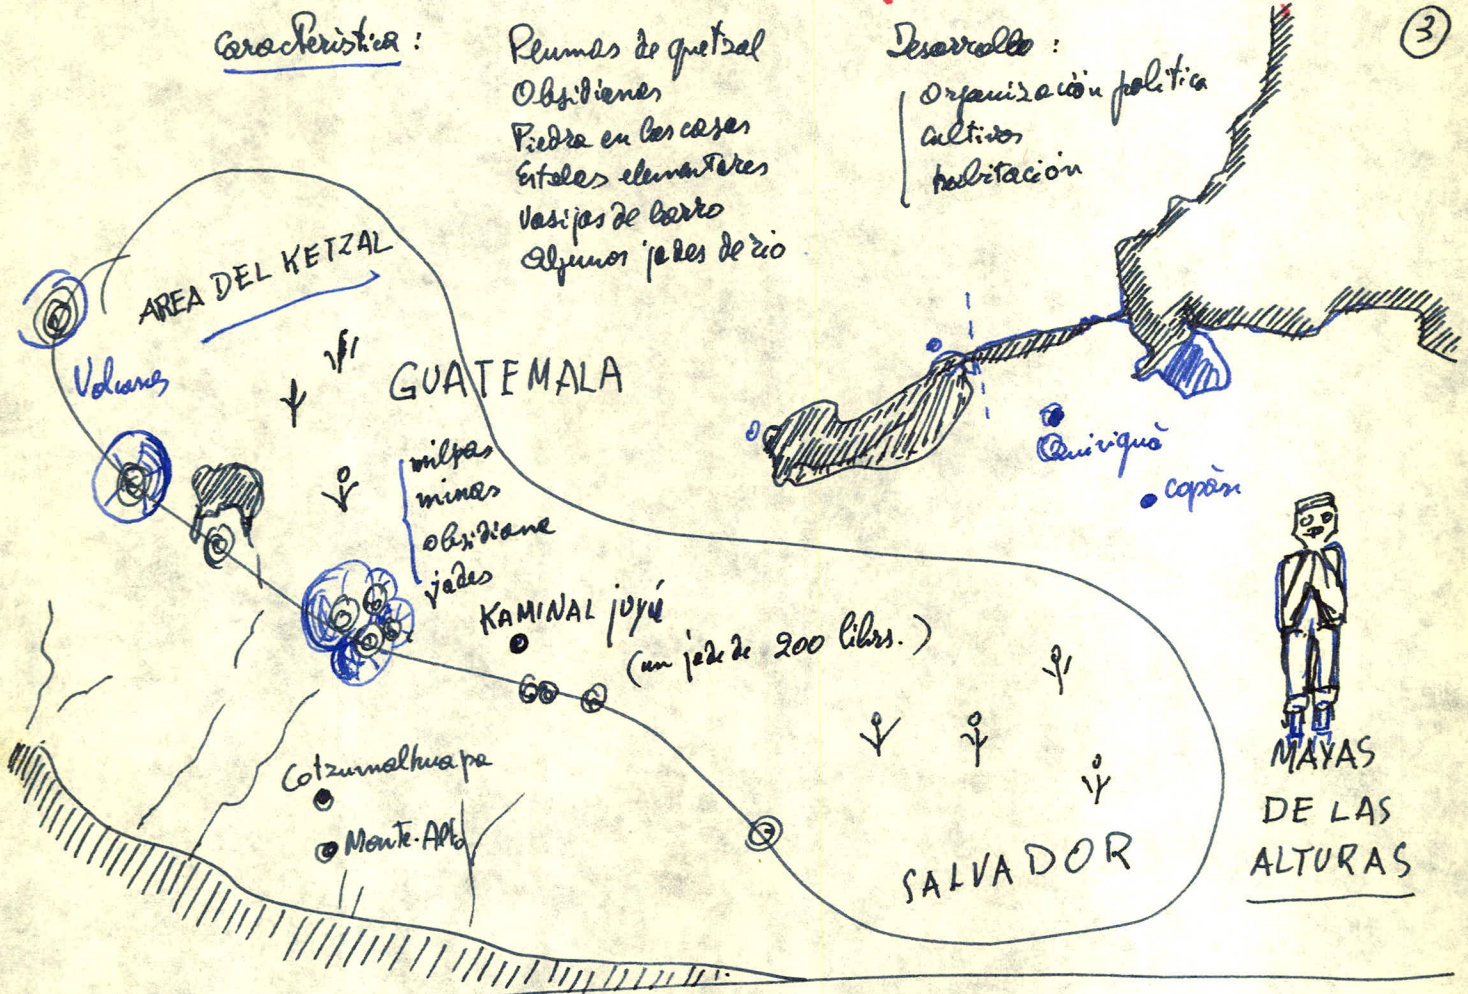 3
Característica :
Plumas de quetzal
Obsidianas
Piedra en las casas
Estelas elementares
Vasijas de barro
Algunos jades de rio
Desarrollo :
organización politica
cultivos
habitación
AREA DEL KETZAL
Volcanes
GUATEMALA
milpas
minas
obsidiana
jades
KAMINAL juyú
(un jade de 200 librs.)
Quiriguà
copàn
Cotzumalhuapa
Monte-Alto
SALVADOR
MAYAS
DE LAS
ALTURAS